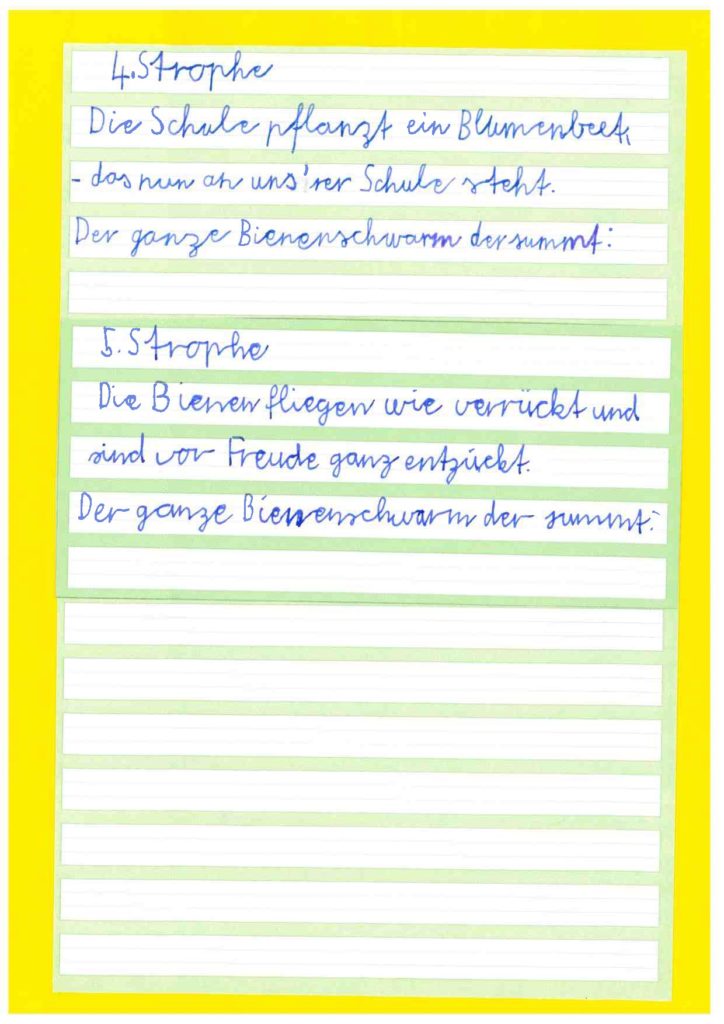 4. Strophe
Die Schule pflanzt ein Blumenbeet,
- das nun an uns'rer Schule steht.
Der ganze Bienenschwarm der summt:
5. Strophe
Die Bienen fliegen wie verrückt und
sind vor Freude ganz entzückt.
Der ganze Bienenschwarm der summt: